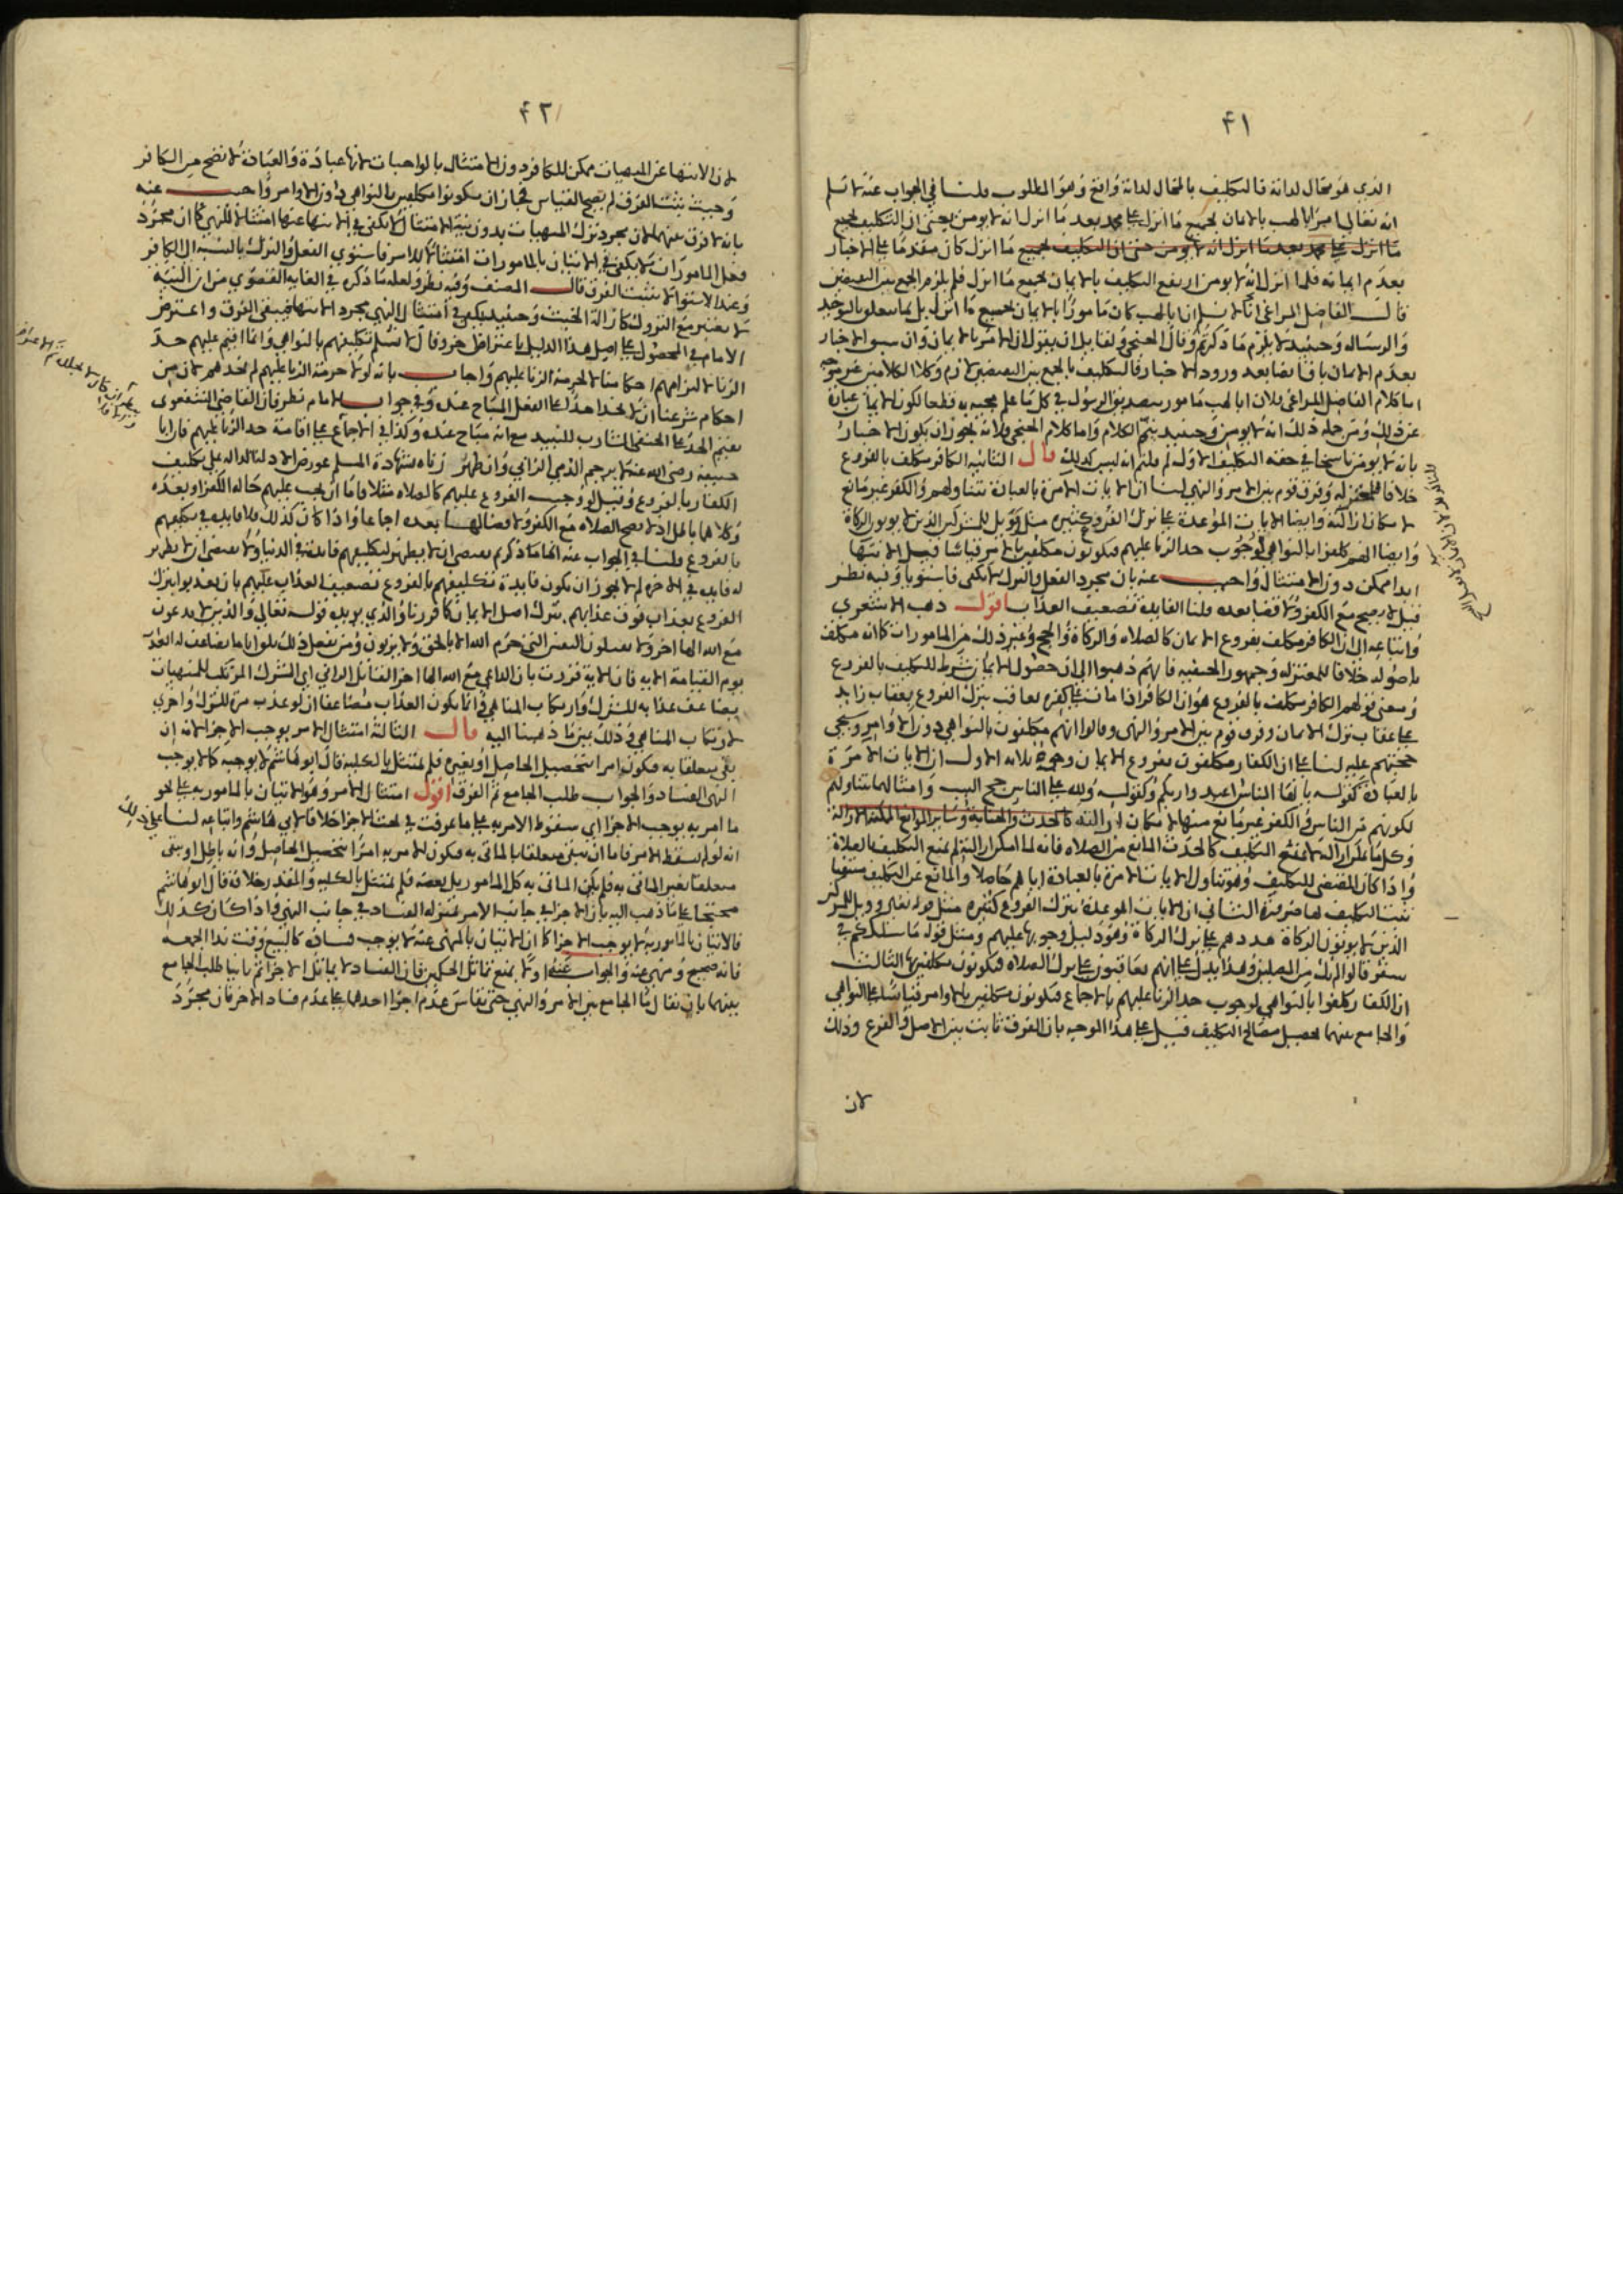 ٤١
الذي هو محال لذاته فالتكليف بالمحال لذاته واقع وهو المطلوب قلنا في الجواب عنه لا نسلم
انه تعالى امر ابا لهب بالايمان بجميع ما انزل على محمد بعد ما انزل انه لا يومن يعني ان التكليف بجميع
ما انزل على محمد بعد ما انزل انه لا يومن حتى ان التكليف بجميع ما انزل كان مقدما على الاخبار
بعدم ايمانه فلما انزل انه لا يومن ارتفع التكليف بالايمان بجميع ما انزل فلم يلزم الجمع بين النقيضين
قال الفاضل المراغي انا لا نسلم ان ابا لهب كان مامورا بالايمان بجميع ما انزل بل بما يتعلق بالتوحيد
والرسالة وحينئذ لا يلزم ما ذكرتم وقال الخنجي ولقايل ان يقول ان الامر بالايمان وان سبق الاخبار
بعدم الايمان باق ايضا بعد ورود الاخبار فالتكليف بالجمع بين النقيضين لازم وكلا الكلامين غير موجه
اما كلام الفاضل المراغي فلان ابا لهب مامور بتصديق الرسول في كل ما علم مجيه به قطعا لكون الايمان عبارة
عن ذلك ومن جملة ذلك انه لا يومن وحينئذ يتم الكلام واما كلام الخنجي فلانه يجوز ان يكون الاخبار
بانه لا يومن ناسخا في حقه التكليف الاول لم قلتم انه ليس كذلك قال الثانية الكافر مكلف بالفروع
خلافا للمعتزلة وفرق قوم بين الامر والنهي لنا ان الايات الامرة بالعبادة تتناولهم والكفر غير مانع
لامكان ازالته وايضا الايات الموعدة على ترك الفروع كثيرة مثل وويل للمشركين الذين لا يوتون الزكاة
وايضا انهم كلفوا بالنواهي لوجوب حد الزنا عليهم فيكونون مكلفين بالامر قياسا قيل الانتهاء
ابدا ممكن دون الامتثال واجيب عنه بان مجرد الفعل والترك لا يكفي فاستويا وفيه نظر
قيل لا يصح مع الكفر ولا قضا بعده قلنا الفايدة تضعيف العذاب اقول ذهب الاشعري
واتباعه الى ان الكافر مكلف بفروع الايمان كالصلاة والزكاة والحج وغير ذلك من المامورات كما انه مكلف
باصوله خلافا للمعتزلة وجمهور الحنفية فانهم ذهبوا الى ان حصول الايمان شرط للتكليف بالفروع
ومعنى قولهم الكافر مكلف بالفروع هو ان الكافر اذا مات على كفره يعاقب بترك الفروع بعقاب زايد
على عقاب ترك الايمان وفرق قوم بين الامر والنهي وقالوا انهم مكلفون بالنواهي دون الاوامر وسيجي
حجتهم عليه لنا على ان الكفار مكلفون بفروع الايمان وجوه ثلاثة الاول ان الايات الامرة
بالعبادة كقوله يا ايها الناس اعبدوا ربكم وكقوله ولله على الناس حج البيت وامثالهما يتناولهم
لكونهم من الناس والكفر غير مانع منها لامكان ازالته كالحدث والجنابة وساير الموانع الممكنة الازالة
وكل ما امكن ازالته لا يمنع التكليف كالحدث المانع من الصلاة فانه لما امكن ازالته لم يمنع التكليف بالصلاة
واذا كان المقتضي للتكليف وهو تناول الايات الامرة بالعبادة اياهم حاصلا والمانع عن التكليف منتفيا
يثبت التكليف لها ضرورة الثاني ان الايات الموعدة بترك الفروع كثيرة مثل قوله تعالى وويل للمشركين
الذين لا يوتون الزكاة هددهم على ترك الزكاة وهو دليل وجوبها عليهم ومثل قوله ما سلككم في
سقر قالوا لم نك من المصلين وهذا يدل على انهم يعاقبون على ترك الصلاة فيكونون مكلفين بها الثالث
ان الكفار كلفوا بالنواهي لوجوب حد الزنا عليهم بالاجماع فيكونون مكلفين بالاوامر قياسا على النواهي
والجامع بينهما تحصيل مصالح التكليف قيل على هذا الوجه بان الفرق ثابت بين الاصل والفرع وذلك
لان
٤٢
لان الانتها عن المنهيات ممكن للكافر دون الامتثال بالواجبات لانها عبادة والعبادة لا تصح من الكافر
وحيث يثبت الفرق لم يصح القياس فجاز ان يكونوا مكلفين بالنواهي دون الاوامر واجيب عنه
بانه لا فرق بينهما لان مجرد ترك المنهيات بدون نية الامتثال لا يكفي في الانتها عنها امتثالا للنهي كما ان مجرد
فعل المامورات لا يكفي في الاتيان بالمامورات امتثالا للامر فاستوى الفعل والترك بالنسبة الى الكافر
وعند الاستوا لا يثبت الفرق قال المصنف وفيه نظر ولعله ما ذكره في الغاية القصوى من ان النية
لا تعتبر مع التروك كازالة الخبث وحينئذ يكفي في امتثال النهي مجرد الانتها فيبقى الفرق واعترض
الامام في المحصول على اصل هذا الدليل باعتراض اخر وقال لا نسلم تكليفهم بالنواهي وانما اقيم عليهم حد
الزنا لالتزامهم احكامنا لا لحرمة الزنا عليهم واجاب بانه لولا حرمة الزنا عليهم لم نحدهم لان من
احكام شرعنا ان لا يحد احد على الفعل المباح عنده وفي جواب الامام نظر فان القاضي الشفعوي
يقيم الحد على الحنفي الشارب للنبيد مع انه مباح عنده وكذا في الاجماع على اقامة حد الزنا عليهم فان ابا
حنيفة رضي الله عنه لا يرجم الذمي الزاني وان ظهر زناه بشهادة المسلم عورض الادلة الدالة على تكليف
الكفار بالفروع وقيل لو وجبت الفروع عليهم كالصلاة مثلا فاما ان يجب عليهم حالة الكفر او بعده
وكلاهما باطل اذ لا يصح الصلاة مع الكفر ولا قضا لها بعده اجماعا واذا كان كذلك فلا فايدة في تكليفهم
بالفروع قلنا في الجواب عنه انما ما ذكرتم يقتضي ان لا يظهر لتكليفهم فايدة في الدنيا ولا يقتضي ان لا يظهر
له فايدة في الاخرة لم لا يجوز ان يكون فايدة تكليفهم بالفروع تضعيف العذاب عليهم بان يعذبوا بترك
الفروع بعذاب فوق عذابهم بترك اصل الايمان كافر زنا والذي يويده قوله تعالى والذين لا يدعون
مع الله الها اخر ولا يقتلون النفس التي حرم الله الا بالحق ولا يزنون ومن يفعل ذلك يلق اثاما يضاعف له العذاب
يوم القيامة الاية فان الاية قررت بان الداعي مع الله الها اخر القاتل الزاني اي المشرك المرتكب للمنهيات
يضاعف عذابه للشرك وارتكاب المناهي وانما يكون العذاب مضاعفا ان لو عذب مرة للشرك واخرى
لارتكاب المناهي وذلك عين ما ذهبنا اليه قال الثالثة امتثال الامر يوجب الاجزا لانه ان
بقي متعلقا به فيكون امرا بتحصيل الحاصل او بغيره فلم يمتثل بالكلية قال ابو هاشم لا يوجبه كما لا يوجب
النهي الفساد والجواب طلب الجامع ثم الفرق اقول امتثال الامر وهو الاتيان بالمامور به على نحو
ما امر به يوجب الاجزا اي سقوط الامر به على ما عرفت في بحث الاجزا خلافا لابي هاشم واتباعه لنا على ذلك
انه لو لم يسقط الامر فاما ان يبقى متعلقا بالماتى به فيكون الامر به امرا بتحصيل الحاصل وانه باطل او يبقى
متعلقا بغير الماتى به فلم يكن الماتى به كل المامور بل بعضه فلم يمتثل بالكلية والمقدر خلافه قال ابو هاشم
محتجا على ما ذهب اليه بان الاجزا في جانب الامر بمنزلة الفساد في جانب النهي واذا كان كذلك
فالاتيان بالمامور به لا يوجب الاجزا كما ان الاتيان بالمنهي عنه لا يوجب فساده كالبيع وقت ندا الجمعة
فانه صحيح ومنهي عنه والجواب عنه اولا بمنع تماثل الحكمين فان الفساد لا يماثل الاجزا ثم ثانيا طلب الجامع
بينهما بان يقال ما الجامع بين الامر والنهي حتى يقاس عدم اجزا احدهما على عدم فساد الاخر فان مجرد